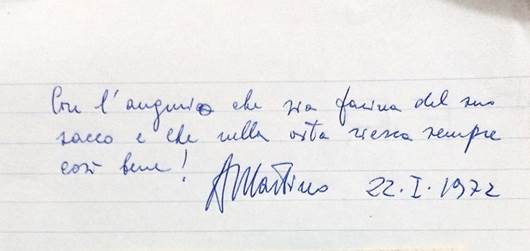 Con l'augurio che sia farina del suo
sacco e che nella vita riesca sempre
così bene!
AMartino 22.I.1972